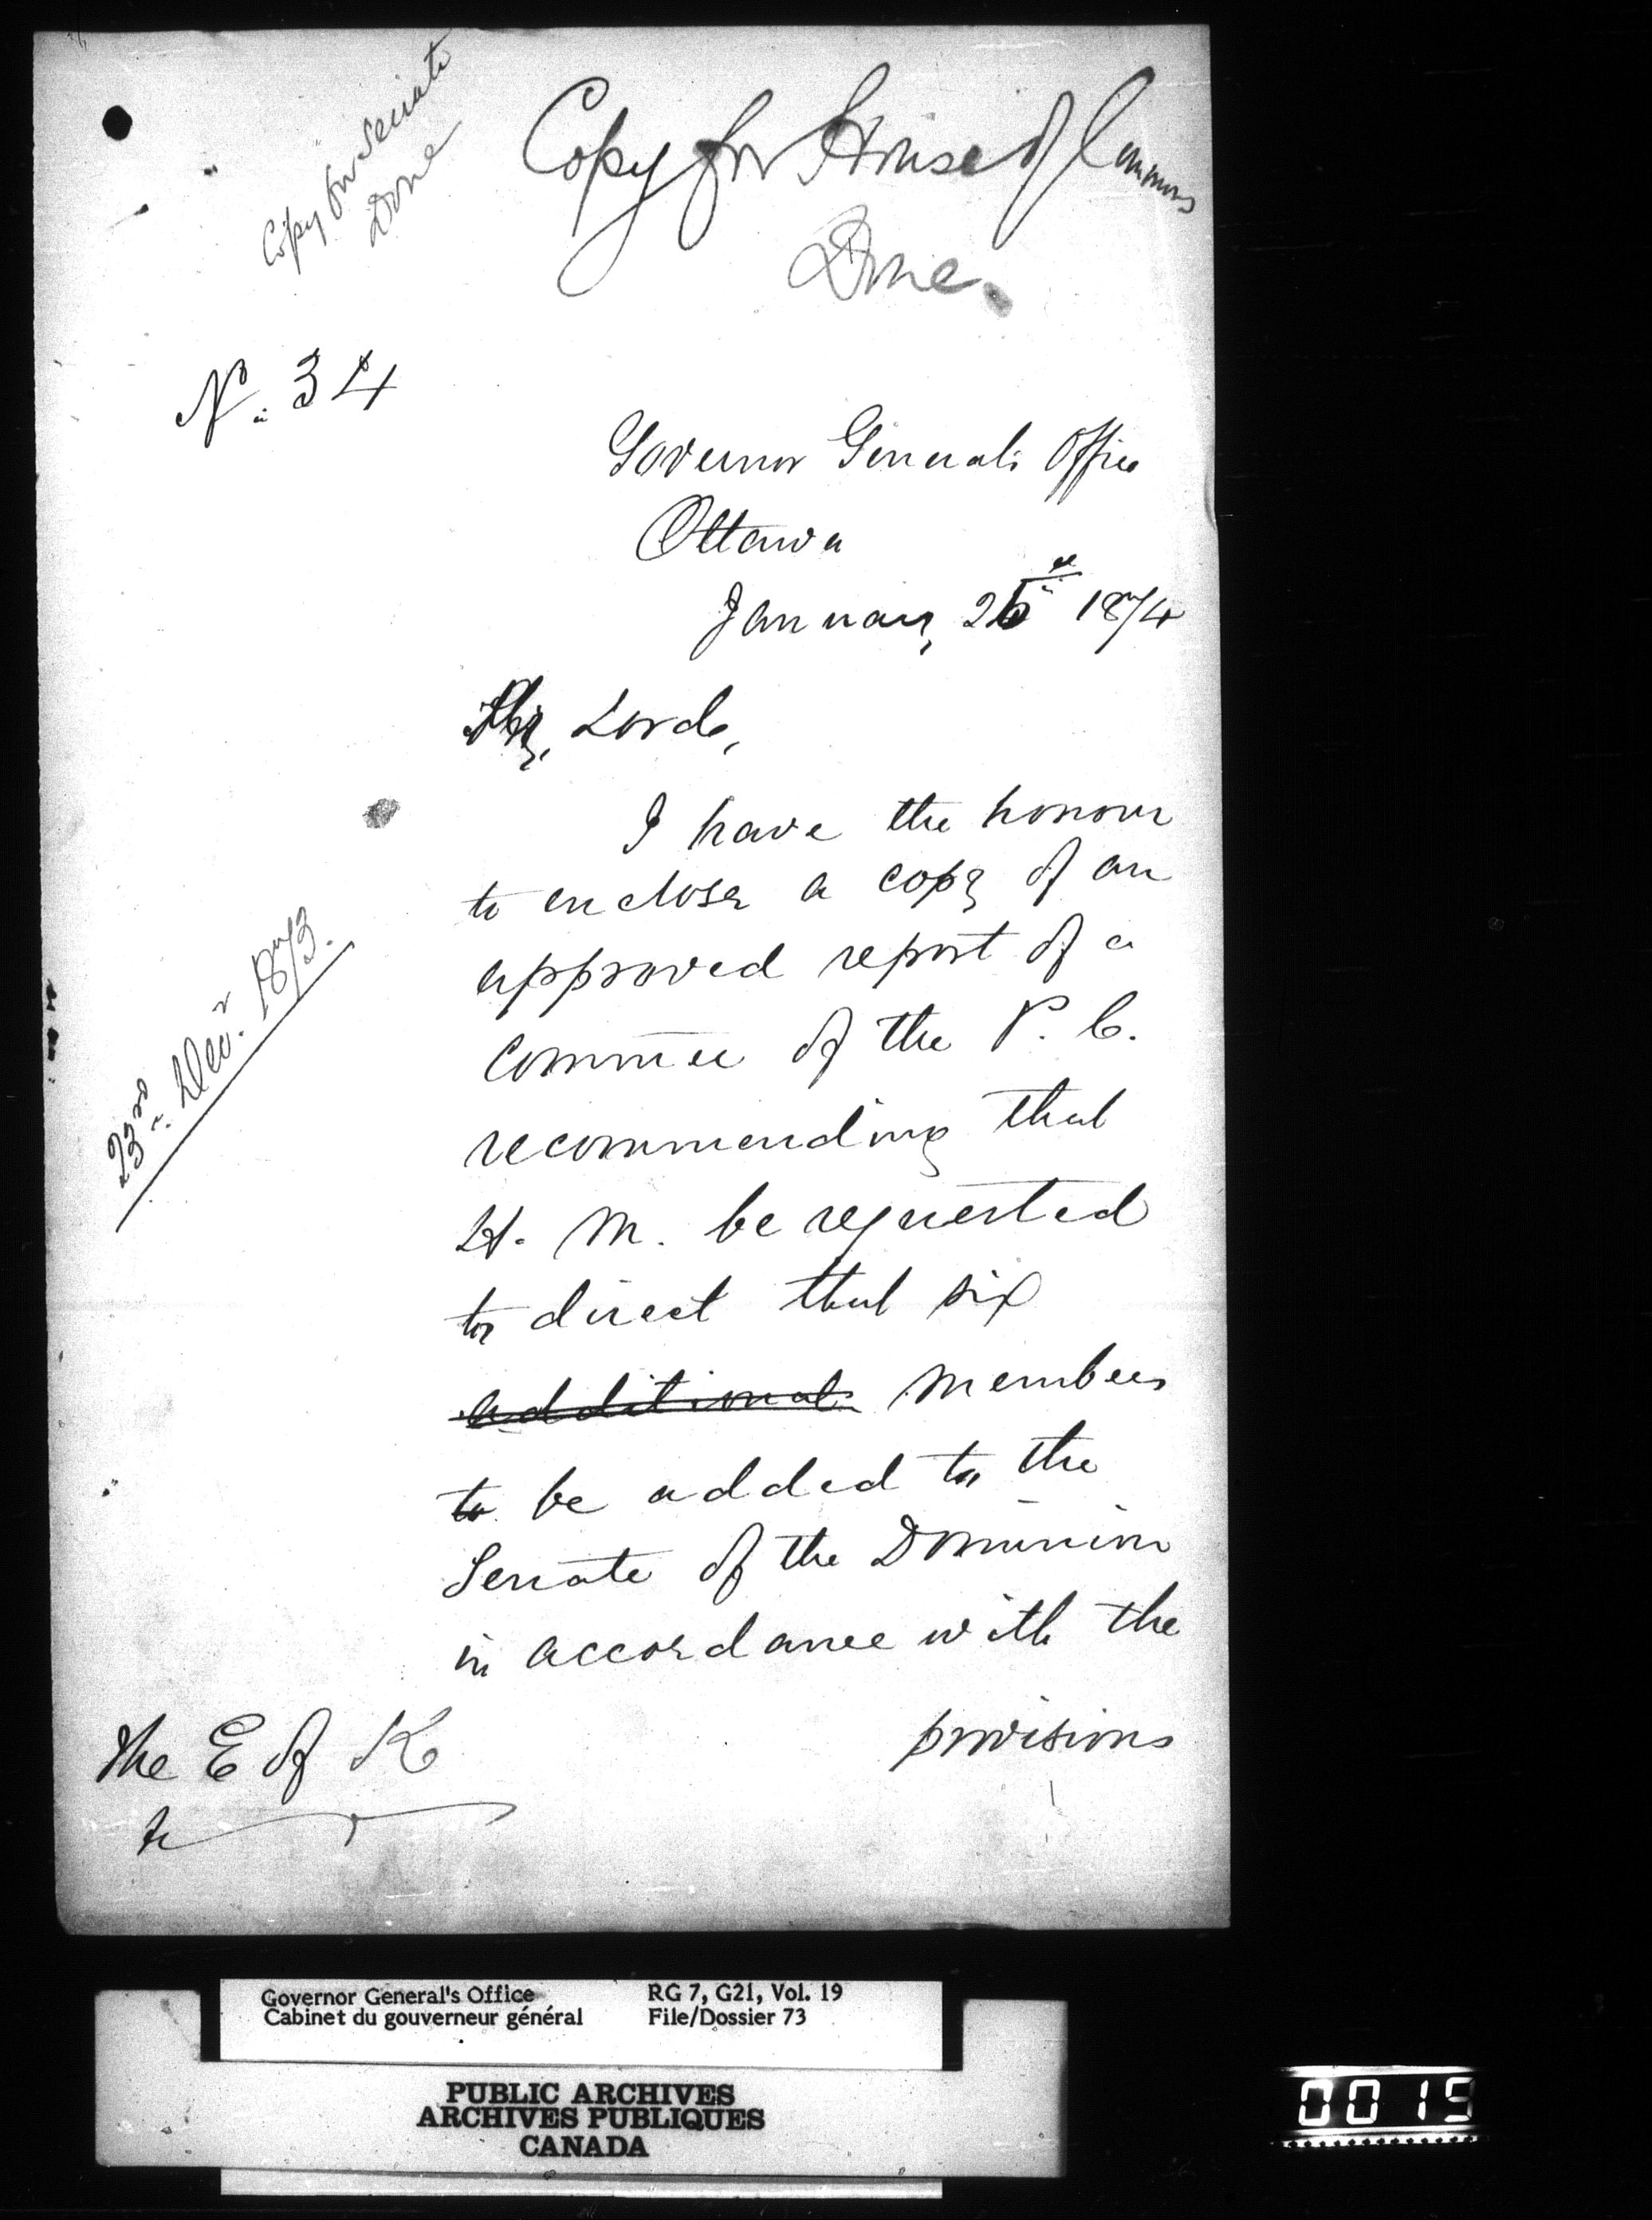 Copy for Senate
Done
Copy for House of Commons
Done.
No. 34
Governor General's Office
Ottawa
January 26th 1874
My Lord,
I have the honour
to enclose a copy of an
approved report of a
Commee of the P. C.
23rd Decr. 1873.
recommending that
H. M. be requested
to direct that six
additional members
to be added to the
Senate of the Dominion
in accordance with the
provisions
The E of K
Governor General's Office
Cabinet du gouverneur général
RG 7, G21, Vol. 19
File/Dossier 73
PUBLIC ARCHIVES
ARCHIVES PUBLIQUES
CANADA
0015